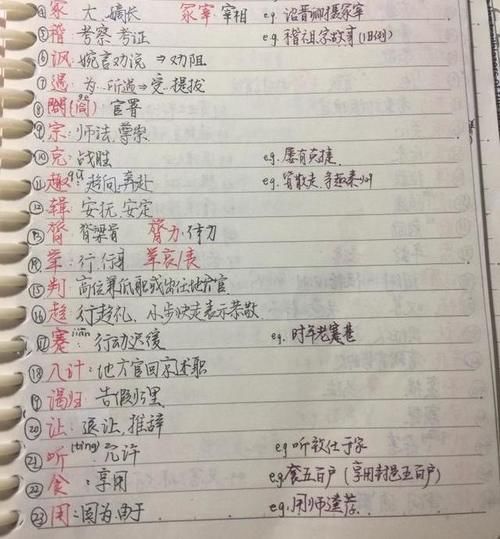 冢 大 嫡长 冢宰 宰相 eg.诏晋卿摄冢宰
⑤ 稽 考察.考证 eg.稽祖宗故事(旧例)
⑥ 讽 婉言劝说 ⇒ 劝阻
⑦ 遇: 为…所遇⇒受…提拔
⑧ 閤(阁) 官署
⑨ 宗: 师法.尊崇
⑩ 克: 战胜 eg.屡有克捷
⑪ 趣: 趋向.奔赴 eg.官散夫.子趣秦州
⑫ 辑: 安抚.安定
⑬ 膂 脊梁骨 膂力:体力
⑭ 举: 行,行身 举哀/丧
⑮ 判: 高位兼低职或出任地方官
⑯ 趋: 行趋礼.小步快走表示恭敬
⑰ 蹇 jiǎn: 行动迟缓 eg.时年老蹇
⑱ 入计: 地方官回京述职
⑲ 谒归: 告假归里
⑳ 让: 退让.推辞
㉑ 听(tìng) 允许 eg.听敕仕于家
㉒ 食: 享用 eg.食五百户(享用封邑五百户)
㉓ 用: 因为.由于 eg.用师逵荐.